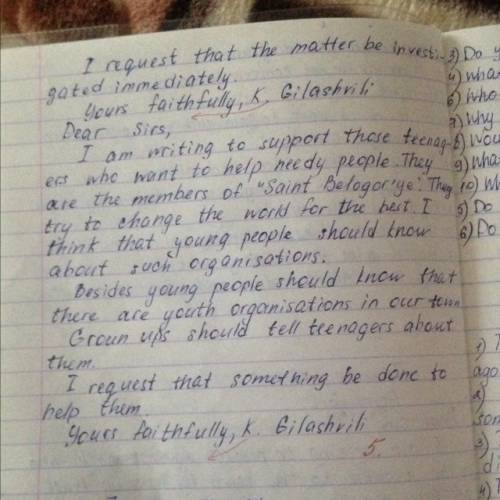 I request that the matter be investi-
gated immediately.
Yours faithfully, K. Gilashvili
Dear Sirs,
I am writing to support those teenag-
ers who want to help needy people. They
are the members of "Saint Belogor'ye". They
try to change the world for the best. I
think that young people should know
about such organisations.
Besides young people should know that
there are youth organisations in our town
Groun ups should tell teenagers about
them.
I request that something be done to
help them.
Yours faithfully, K. Gilashvili
5.
3) Do
4) what
6) Who
7) Why
8)
9) What
10)
5) Do
6) Do
1)
ago
2)
som
3)
di
4)